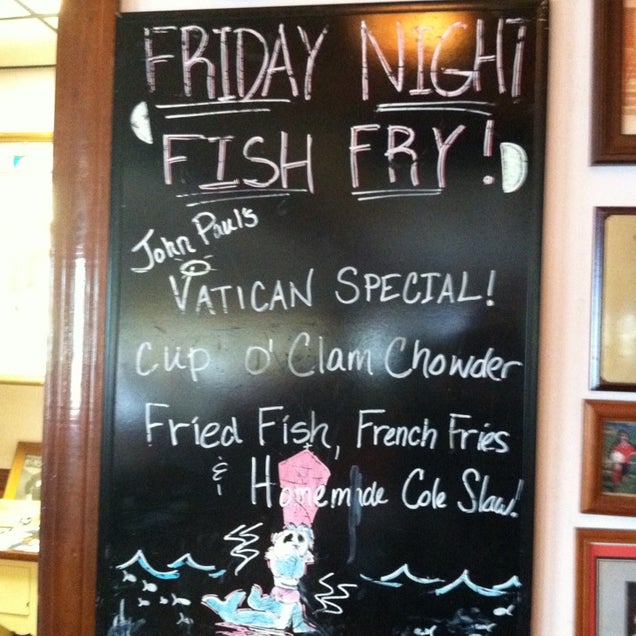 FRIDAY NIGHT
FISH FRY!
John Paul's
VATICAN SPECIAL!
cup o' Clam Chowder
Fried Fish, French Fries
& Homemade Cole Slaw!